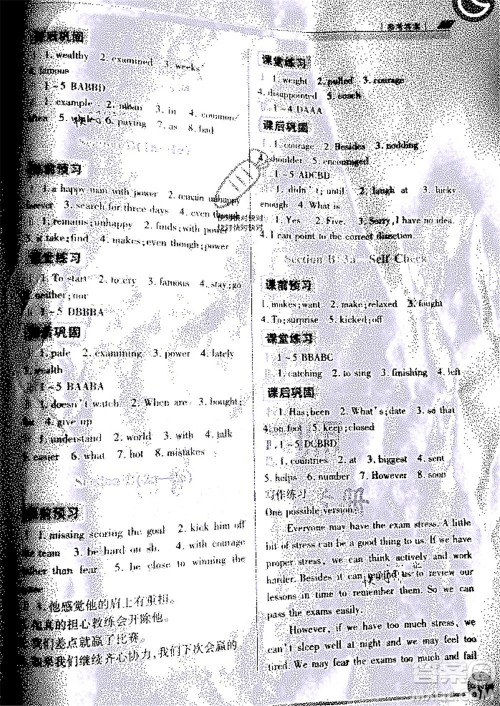 参考答案
课后巩固
1. wealthy 2. examined 3. weeks'
4. famous
1~5 BABBD
1. example 2. mean 3. in 4. common
6. paying 7. as 8. bad
课前预习
1. a happy man with power 2. remain unhappy
forever 3. search for three days 4. even though
1. remains; unhappy 2. finds; with power
3. it take; find 4. makes; even though; power
课堂练习
1. To start 2. to cry 3. famous 4. stay; go
5. neither; nor
1~5 DBBBA
课后巩固
1. pale 2. examining 3. power 4. lately
5. wealth
1~5 BAABA
1. doesn't watch 2. When are 3. bought;
for 4. give up
1. understand 2. world 3. with 4. talk
5. easier 6. what 7. hot 8. mistakes
课前预习
1. missing scoring the goal 2. kick him off
the team 3. be hard on sb. 4. with courage
rather than fear 5. be close to winning the
game
1. 他感觉他的肩上有重担。
2. 他真的担心教练会开除他。
3. 我们差点就赢了比赛。
4. 如果我们继续齐心协力,我们下次会赢的
课堂练习
1. weight 2. pulled 3. courage
4. disappointed 5. coach
1~4 DAAA
课后巩固
1. courage 2. Besides 3. nodding
4. shoulder 5. encouraged
1~5 ADCBD
1. didn't; until 2. laugh at 3. lucky
enough 4. What is
1. Yes 2. Five. 3. Sorry, I have no idea.
4. I can point to the correct direction.
Section B 3a~Self Check
课前预习
1. makes; want 2. make; relaxed 3. fought
4. To; surprise 5. kicked; off
课堂练习
1~5 BBABC
1. catching 2. to sing 3. finishing 4. left
课后巩固
1. Has; been 2. What's; date 3. so that
4. on foot 5. keep; closed
1~5 DCBRD
1. countries 2. at 3. biggest 4. sent
5. helps 6. number 7. However 8. soon
写作练习
One possible version:
Everyone may have the exam stress. A little
bit of stress can be a good thing to us. If we have
proper stress, we can think actively and work
harder. Besides it can guide us to review our
lessons in time to remember them. So we can
pass the exams easily.
However, if we have too much stress, we
can't sleep well at night and we may feel too
tired. We may fear the exams too much and fail